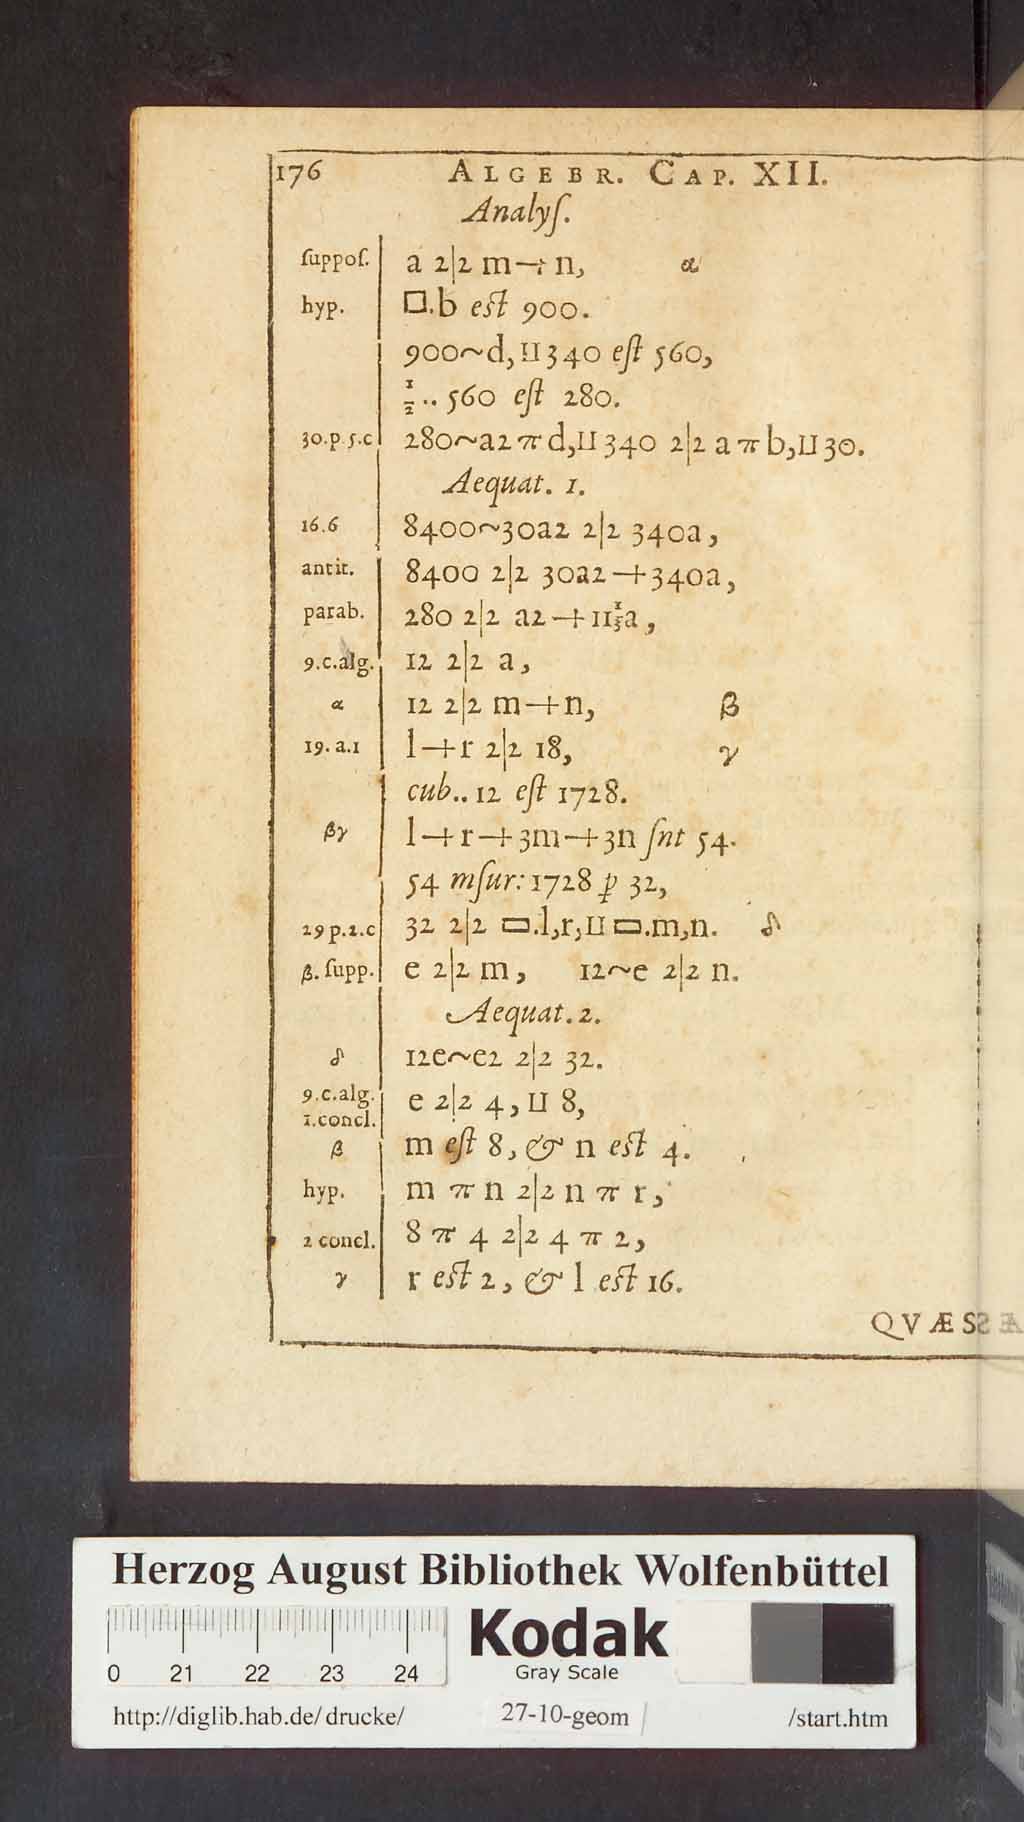 176 ALGEBR. CAP. XII.
Analyſ.
ſuppoſ. a 2|2 m-+n, α
hyp. □.b eſt 900.
900~d,II340 eſt 560,
½.. 560 eſt 280.
30.p.5.c 280~a2 π d,II340 2|2 a π b,II30.
Aequat. 1.
16.6 8400~30a2 2|2 340a,
antit. 8400 2|2 30a2-+340a,
parab. 280 2|2 a2-+11⅓a,
9.c.alg. 12 2|2 a,
α 12 2|2 m-+n, β
19.a.1 l-+r 2|2 18, γ
cub.. 12 eſt 1728.
βγ l-+r-+3m-+3n ſnt 54.
54 mſur: 1728 ꝑ 32,
29 p.2.c 32 2|2 ▭.l,r,II ▭.m,n. δ
β. ſupp. e 2|2 m, 12~e 2|2 n.
Aequat. 2.
δ 12e~e2 2|2 32.
9.c.alg. e 2|2 4, II 8,
1.concl.
β m eſt 8, & n eſt 4.
hyp. m π n 2|2 n π r,
2 concl. 8 π 4 2|2 4 π 2,
γ r eſt 2, & l eſt 16.
QVÆS
Herzog August Bibliothek Wolfenbüttel
Kodak
Gray Scale
0 21 22 23 24
http://diglib.hab.de/drucke/ 27-10-geom /start.htm